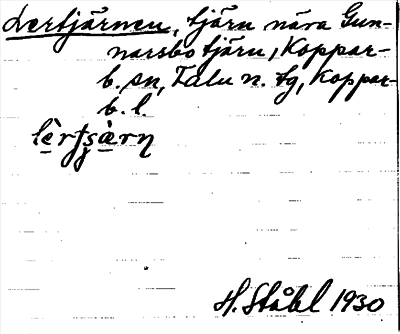 Lertjärnen, tjärn nära Gun-
narsbotjärn, Koppar-
b. sn, Falu n. tg, Koppar-
b. l.
H. Ståhl 1930